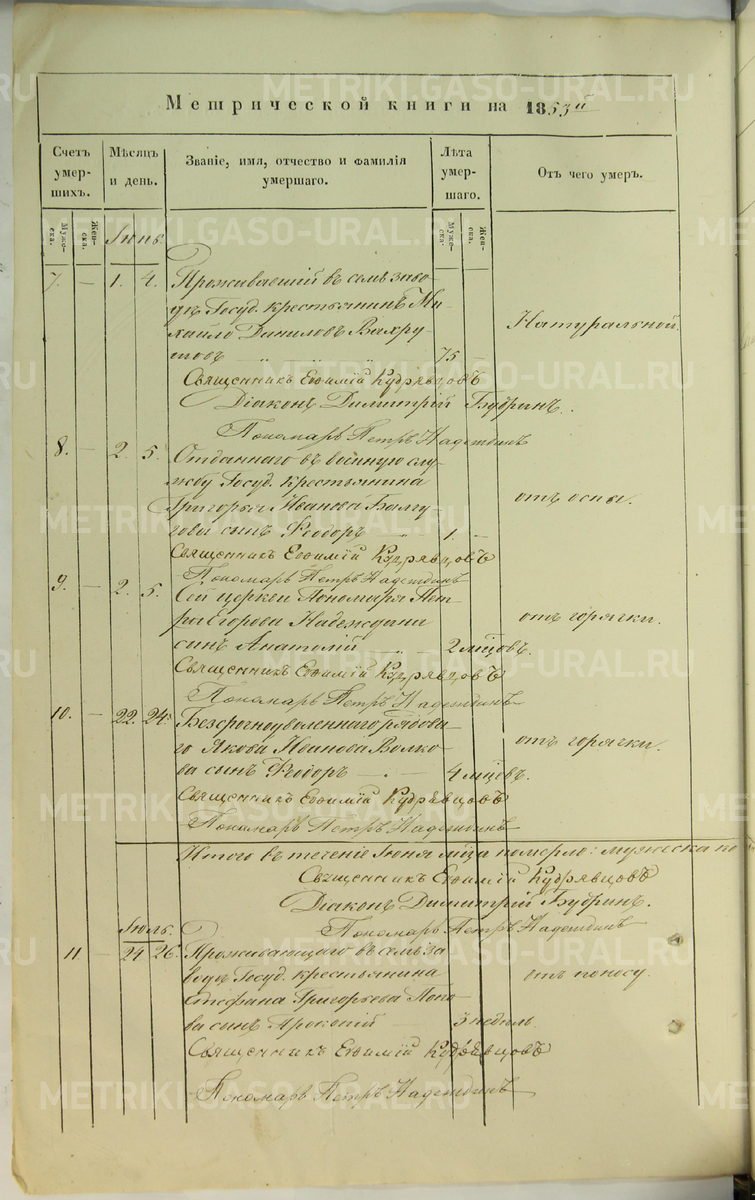 Метрической книги на 1853й
Счетъ умер- шихъ.
Мѣсяцъ и день.
Званіе, имя, отчество и фамилія умершаго.
Лѣта умер- шаго.
Отъ чего умеръ.
Муже- ска.
Жен- ска.
Муже- ска.
Жен- ска.
Іюнь
7. — 1. 4. Проживавшій въ семъ заво-
дѣ Госуд. крестьянинъ Ми-
хайло Даниловъ Вахру-
шовъ 75 Натуральной.
Священникъ Евѳимій Кудрявцовъ
Діаконъ Димитрій Бубринъ.
Пономарь Петръ Надеждинъ
8. — 2. 5. Отданнаго въ военную слу-
жбу Госуд. крестьянина
Григорья Иванова
сынъ Ѳеодоръ 1. — отъ оспы.
Священникъ Евѳимій Кудрявцовъ
Пономарь Петръ Надеждинъ
9. — 2. 5. Сей церкви Пономаря Пет-
ра Егорова Надеждина
сынъ Анатолій 2 мѣцовъ. отъ горячки.
Священникъ Евѳимій Кудрявцовъ
Пономарь Петръ Надеждинъ
10. — 22. 24. Безсрочноуволеннаго рядова-
го Якова Иванова Волко-
ва сынъ Ѳеодоръ — 4 мѣцевъ. отъ горячки.
Священникъ Евѳимій Кудрявцовъ
Пономарь Петръ Надеждинъ
Итого въ теченіе Іюня мѣца померло: мужеска по
Священникъ Евѳимій Кудрявцовъ
Діаконъ Димитрій Бубринъ.
Пономарь Петръ Надеждинъ
Іюль.
11 — 24 26. Проживающаго въ семъ за-
водѣ Госуд. крестьянина
Стефана Григорьева Попо-
ва сынъ Прокопій 3 недѣль отъ поносу.
Священникъ Евѳимій Кудрявцовъ
Пономарь Петръ Надеждинъ
METRIKI.GASO-URAL.RU